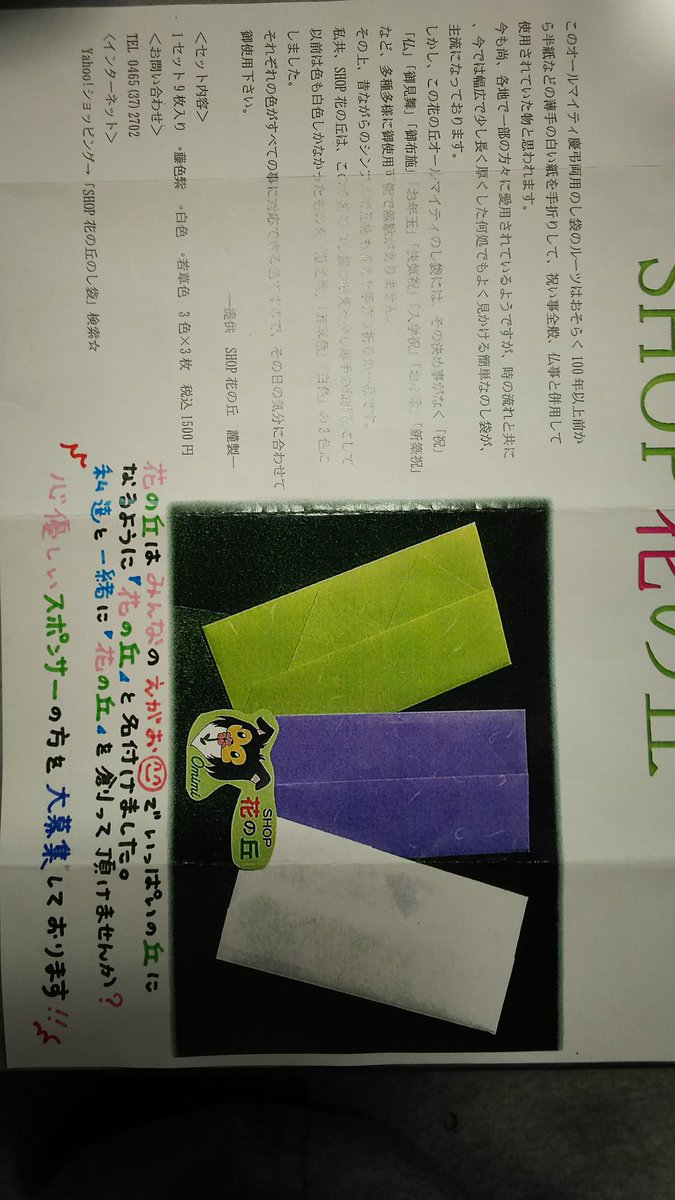 SHOP花の丘
このオールマイティ慶弔両用のし袋のルーツはおそらく100年以上前か
ら半紙などの薄手の白い紙を手折りして、祝い事全般、仏事と併用して
使用されていた物と思われます。
今も尚、各地で一部の方々に愛用されているようですが、時の流れと共に
、今では幅広で少し長く厚くした何処でもよく見かける簡単なのし袋が、
主流になっております。
しかし、この花の丘オールマイティのし袋には、その決め事がなく「祝」
「仏」「御見舞」「御布施」「お年玉」「快気祝」「入学祝」「新築祝」
など、多種多様に御使用可能で無駄がありません。
その上、昔ながらのシン
私共、SHOP花の丘は、この
以前は色も白色しかなかったものを「藤色紫」「若草色」「白色」の3色に
しました。
それぞれの色がすべての事に対応できる色ですので、その日の気分に合わせて
御使用下さい。
―提供 SHOP花の丘 謹製―
<セット内容>
1セット9枚入り ・藤色紫 ・白色 ・若草色 3色×3枚 税込1500円
<お問い合わせ>
TEL 0465(37)2702
<インターネット>
Yahoo!ショッピング→「SHOP花の丘のし袋」検索☆
Omimi
SHOP
花の丘
花の丘はみんなのえがお でいっぱいの丘に
なるように『花の丘』と名付けました。
私達と一緒に『花の丘』を創って頂けませんか?
心優しいスポンサーの方を大募集しております!!